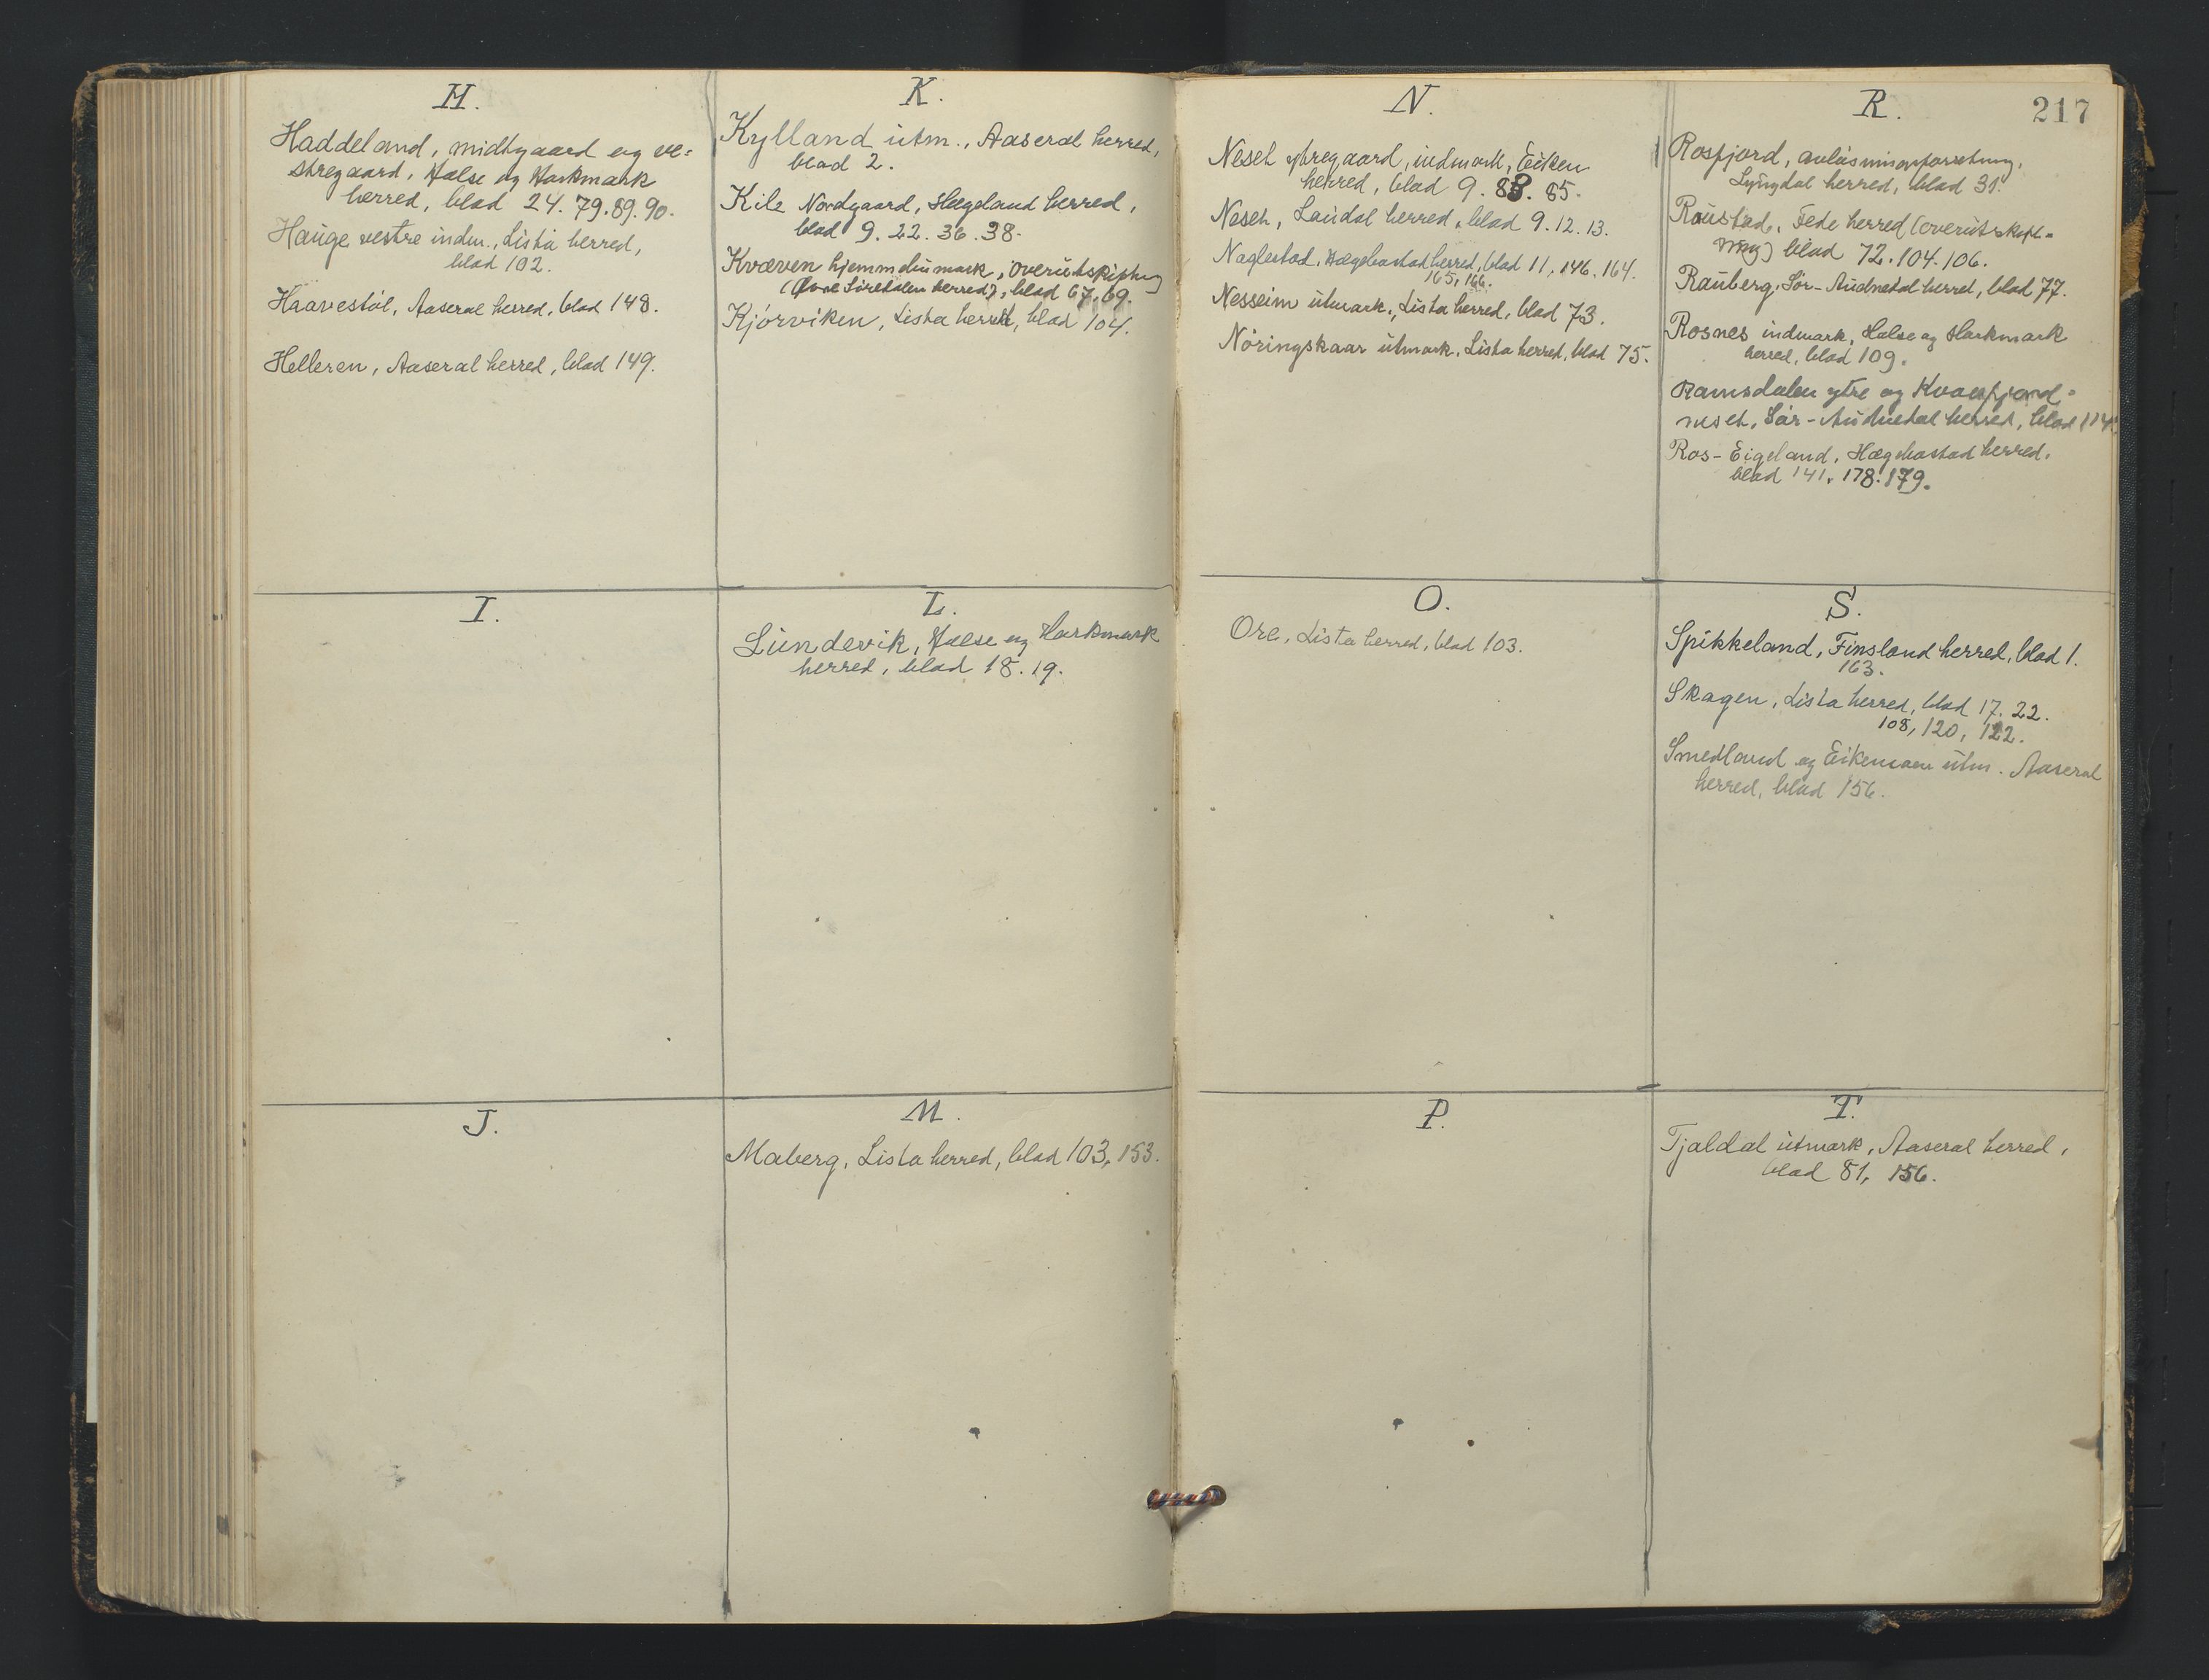 H.
Haddeland, midtgaard og ve=
stregaard, Halse og Harkmark
herred, blad 24. 79. 89. 90.
Hauge vestre indm., Lista herred,
blad 102.
Haavestøl, Aaseral herred, blad 148.
Helleren, Aaseral herred, blad 149.
I.
J.
K.
Kylland utm., Aaseral herred,
blad 2.
Kile Nordgaard, Hægeland herred,
blad 9. 22. 36. 38.
Kvæven hjemmeliumark, overutskiftning
(Øvre Siredalen herred), blad 67, 69.
Kjørviken, Lista herred, blad 104.
L.
Lundevik, Halse og Harkmark
herred, blad 18. 19.
M.
Maberg, Lista herred, blad 103, 153.
217
N.
Neset østregaard, indmark, Eiken
herred, blad 9. 83. 85.
Neset, Laudal herred, blad 9. 12. 13.
Naglestad, Hægebostad herred, blad 11, 146. 164.
165, 166.
Nesseim utmark, Lista herred, blad 73.
Nøringskaar utmark, Lista herred, blad 75.
O.
Ore, Lista herred, blad 103.
P.
R.
Rosfjord, avløsningsforretning,
Lyngdal herred, blad 31.
Raustad, Fede herred (overutskift=
ning) blad 72. 104. 106.
Rauberg, Sør-Audnedal herred, blad 77.
Rosnes indmark, Halse og Harkmark
herred, blad 109.
Ramsdalen ytre og
neset, Sør-Audnedal herred, blad 114.
Ros-Eigeland, Hægebostad herred,
blad 141, 178. 179.
S.
Spikkeland, Finsland herred, blad 1.
163.
Skagen, Lista herred, blad 17. 22.
108, 120, 122.
Smedland og Eikemoen utm. Aaseral
herred, blad 156.
T.
Tjaldal utmark, Aaseral herred,
blad 81, 156.